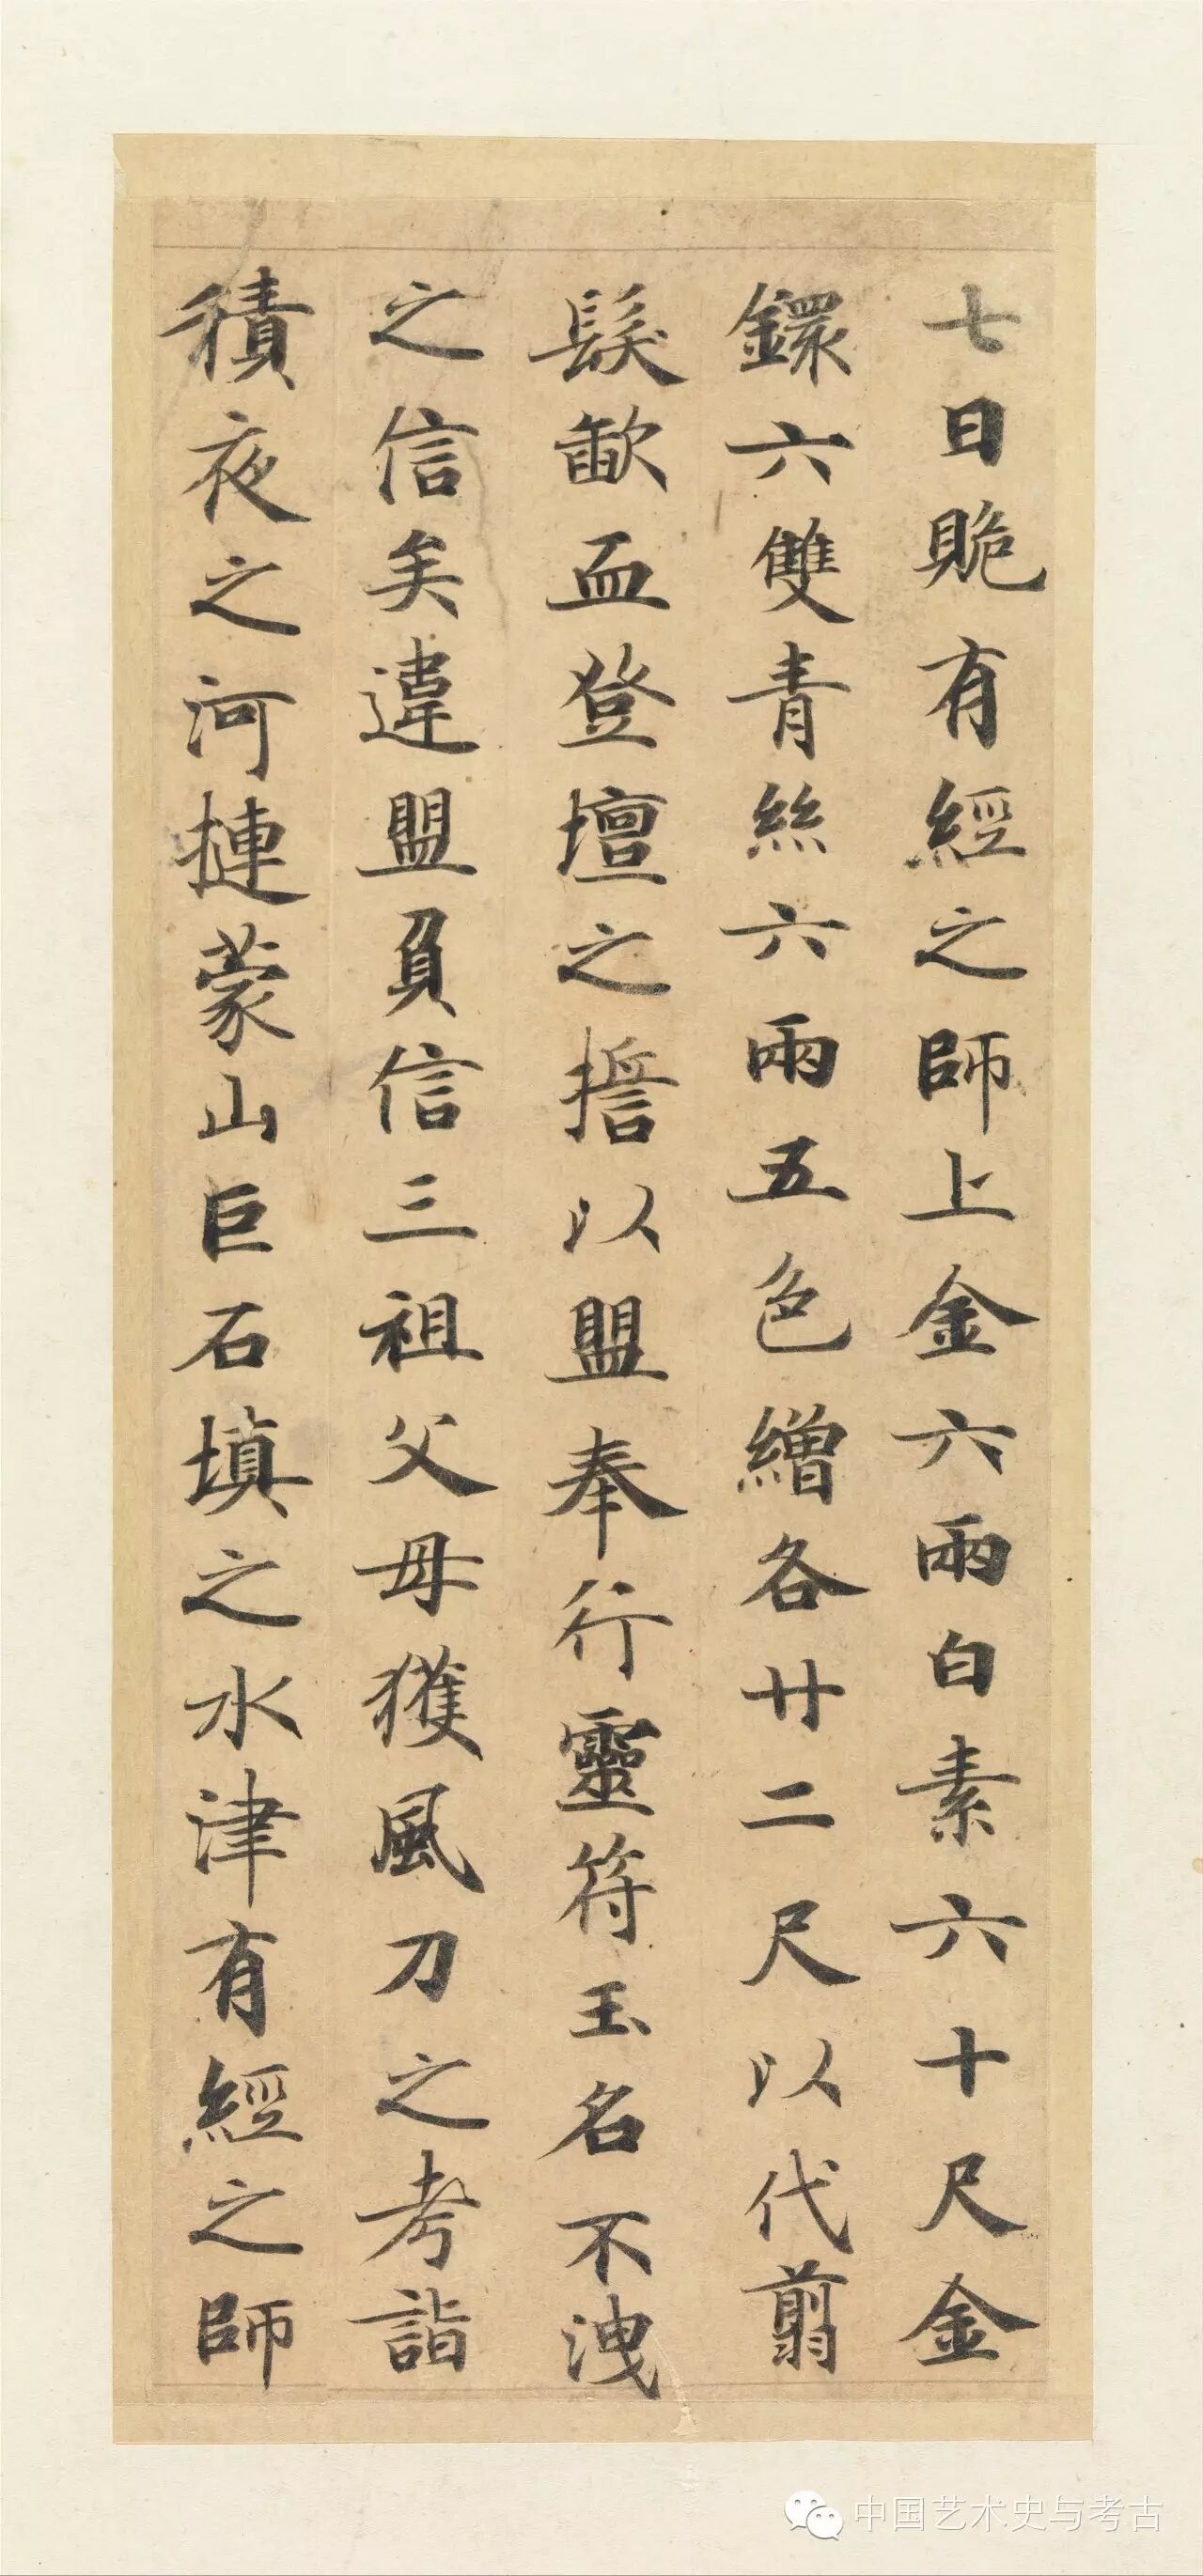 七日賍有經之師上金六兩白素六十尺金
鐶六雙青絲六兩五色繒各廿二尺以代翦
髮歃血登壇之誓以盟奉行靈符玉名不洩
之信矣違盟負信三祖父母獲風刀之考詣
積夜之河摙蒙山巨石填之水津有經之師
中国艺术史与考古